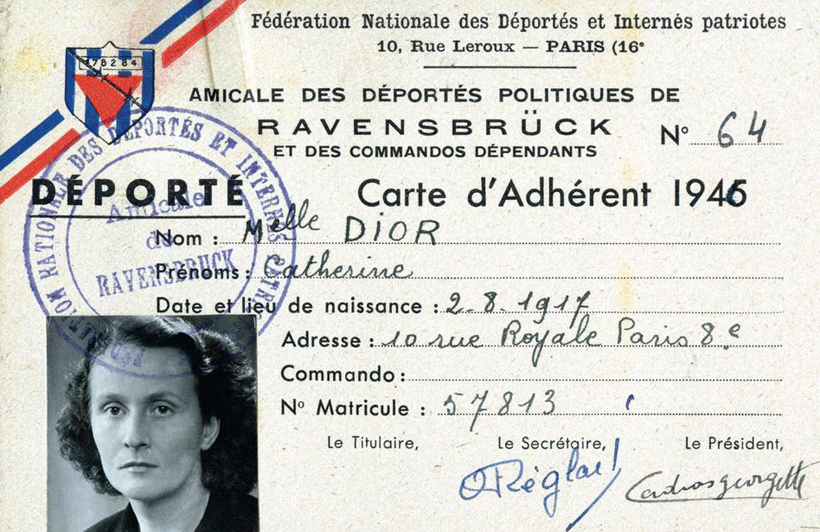 Fédération Nationale des Déportés et Internés patriotes
10, Rue Leroux — PARIS (16e
78284
AMICALE DES DÉPORTÉS POLITIQUES DE
RAVENSBRÜCK
N° 64
ET DES COMMANDOS DÉPENDANTS
DÉPORTÉ
Carte d'Adhérent 1946
DES DÉPORTÉS ET INTERNÉS
Amicale
de
RAVENSBRUCK
Nom : Melle DIOR
Prénoms : Catherine
Date et lieu de naissance : 2.8.1917
Adresse : 10 rue Royale Paris 8e
Commando :
N° Matricule : 57813
Le Titulaire, Le Secrétaire, Le Président,